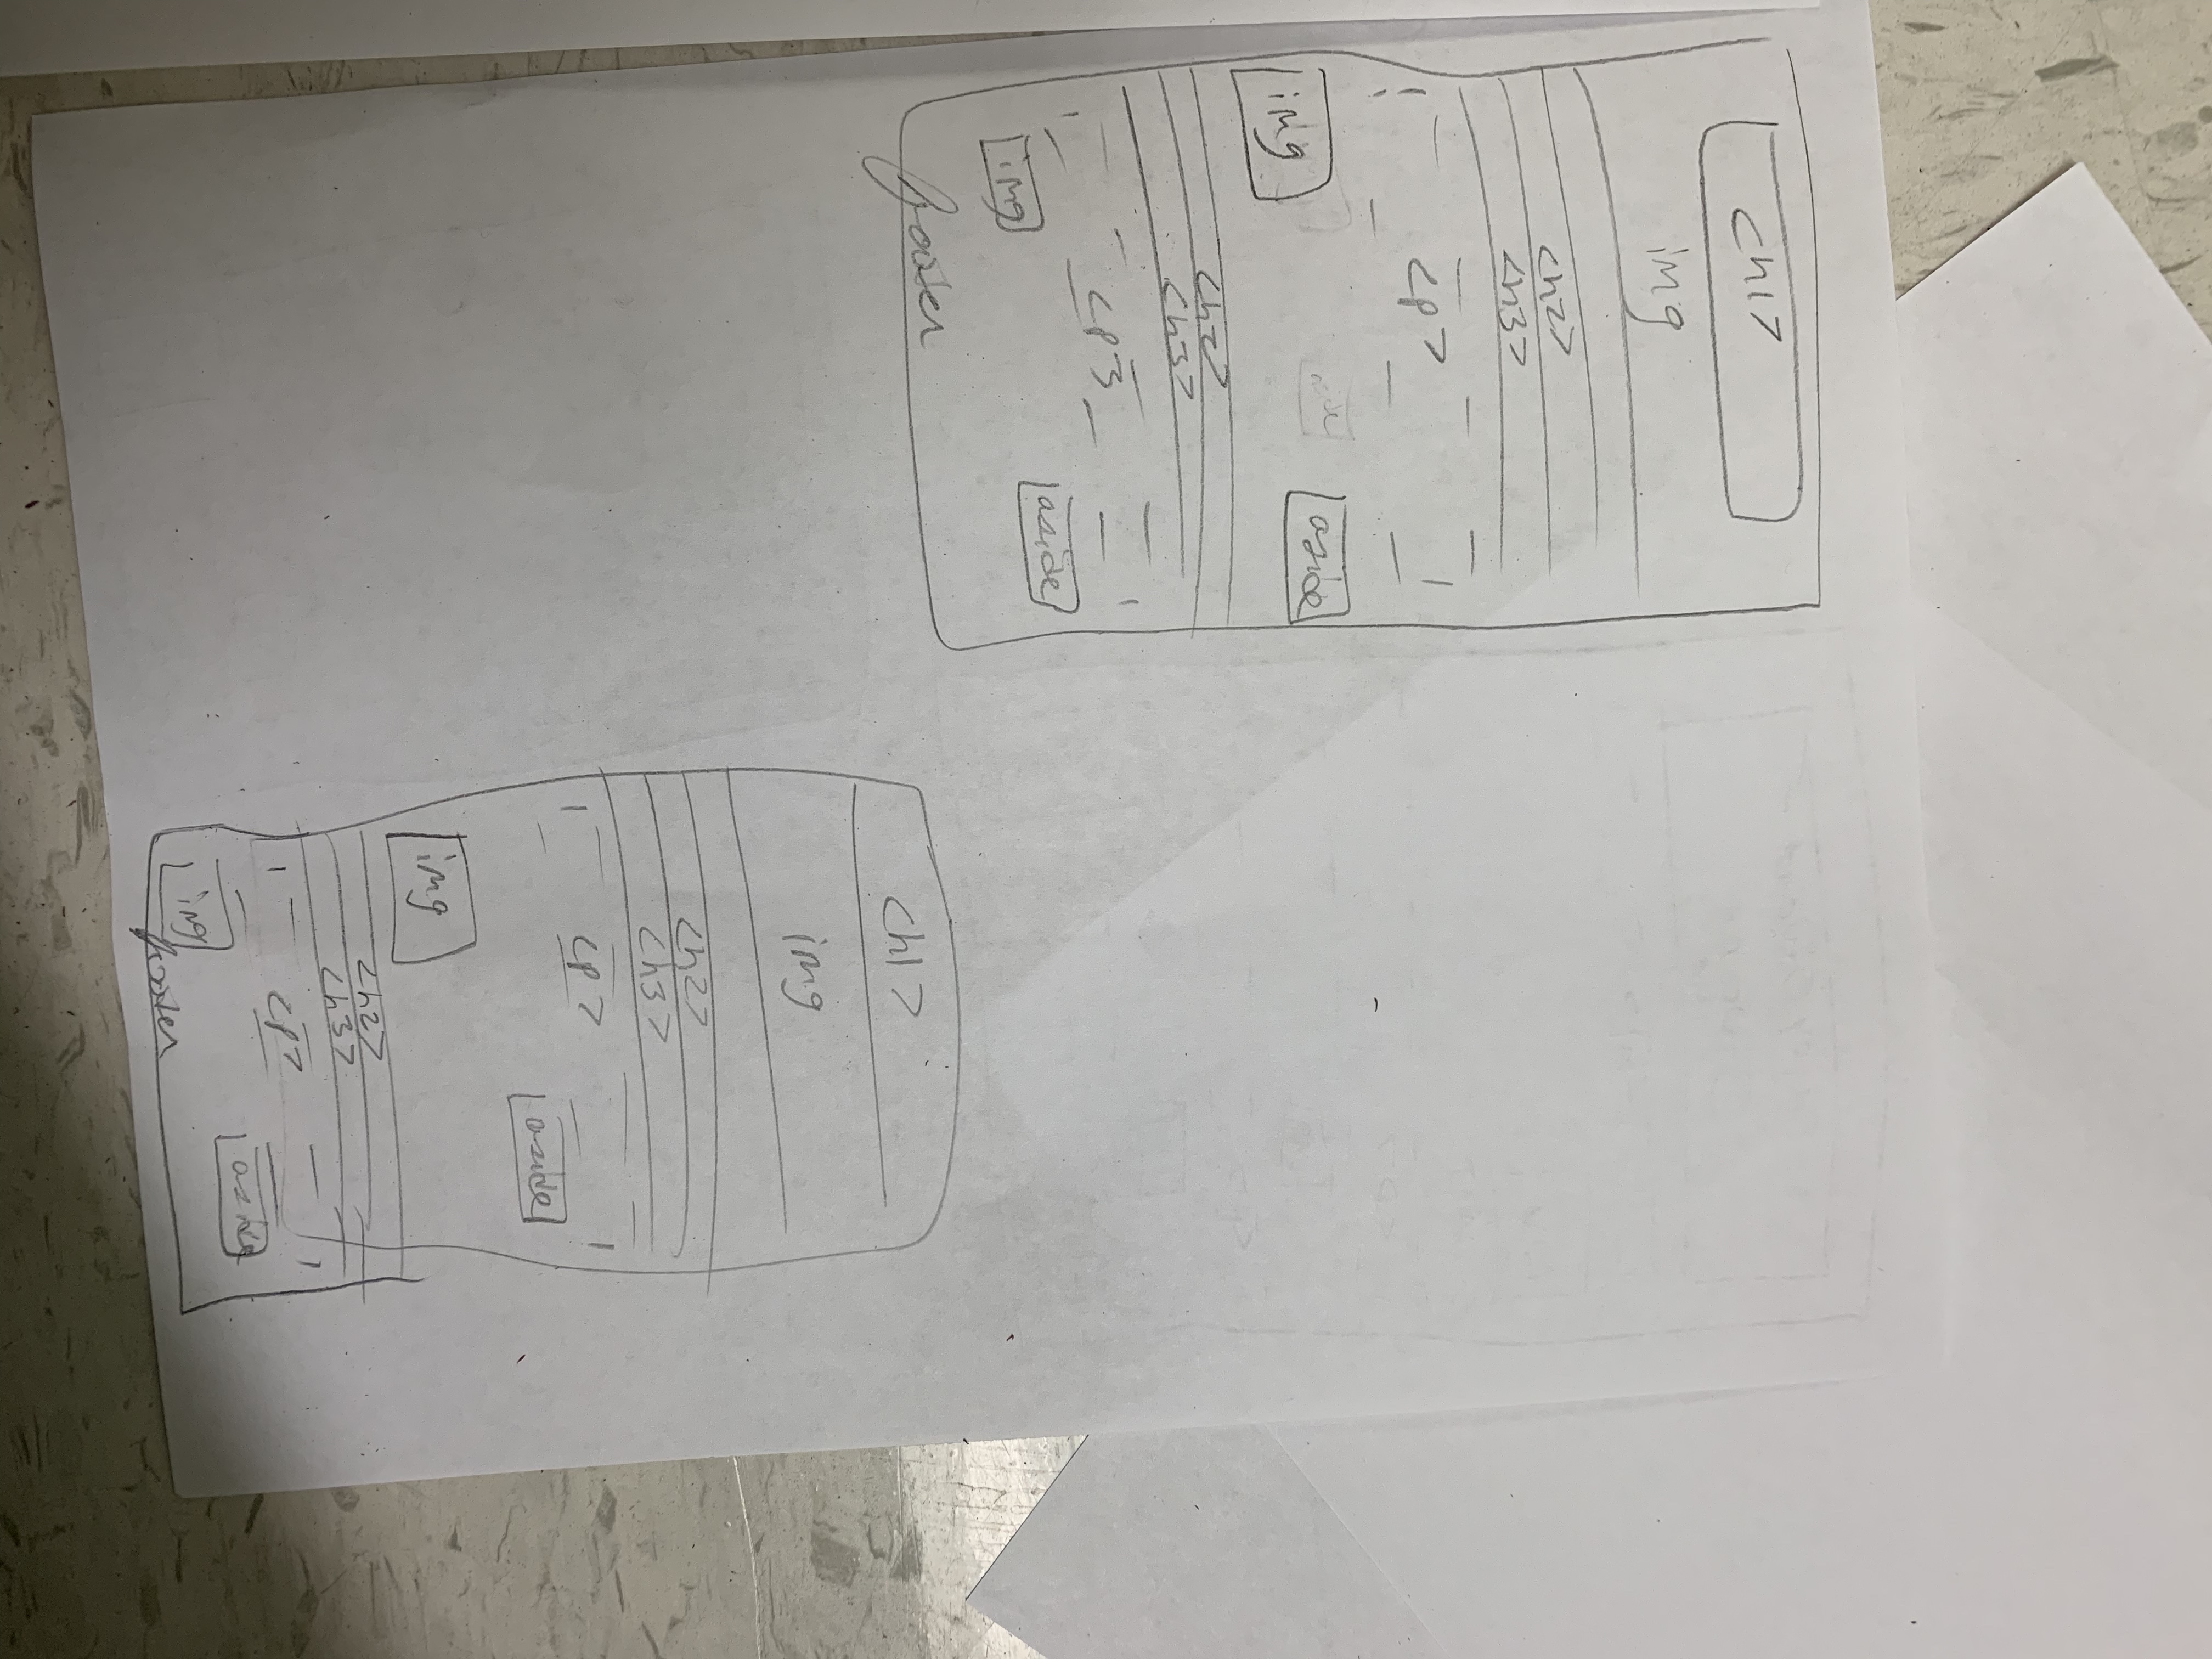 <h1>
img
<h2>
<h3>
<p>
img
aside
<h2>
<h3>
<p3
img
aside
footer
<h1>
img
<h2>
<h3>
<p>
aside
img
<h2>
<h3>
<p>
img
aside
footer